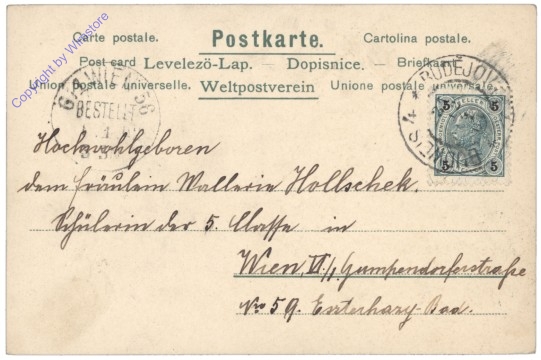 Carte postale. Postkarte. Cartolina postale.
Post card Levelezö-Lap. — Dopisnice. — Briefkart
Union postale universelle. Weltpostverein Unione postale universale.
Copyright by Whitestore
WIEN 56
BESTELLT
BUDĚJOV
BUDWEIS
5 5
5 5
Hochwohlgeboren
dem Fräulein Wallerie Hollschek
Schülerin der 5. Classe in
Wien, VI/1, Gumpendorferstraße
No 59. Eszterhazy-Bad.